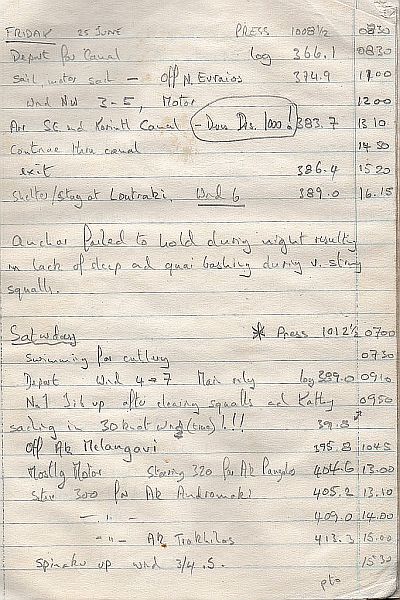 FRIDAY 25 JUNE PRESS 1008½ 0830
Depart for Canal log 366.1 0830
Sail, motor sail - Off N. Evraios 374.9 1100
Wnd NW 3-5, Motor 1200
Arr SE end Korinth Canal - Dues Drs. 1000! 383.7 13 10
Continue thru canal 14 50
exit 386.4 15 20
Shelter/stay at Loutraki. Wnd 6 389.0 16.15
Anchor failed to hold during night resulting
in lack of sleep and quai bashing during v. strong
squalls.
Saturday * Press 1012½ 0700
Swimming for cutlery 0730
Depart Wnd 4 → 7 Main only log 389.0 0910
No1 Jib up after clearing squalls and Kathy 0950
sailing in 30 knot wnds (true)!!! 39.8
Off Ak Melangavi 395.8 1045
Mostly Motor Steering 320 for Ak 404.6 13.00
Steer 300 for Ak Andromaki 405.2 13.10
— " — 409.0 14.00
— " — Ak Trakhilos 413.3 15.00
Spinaker up wnd 3/4 .S. 15 30
pto